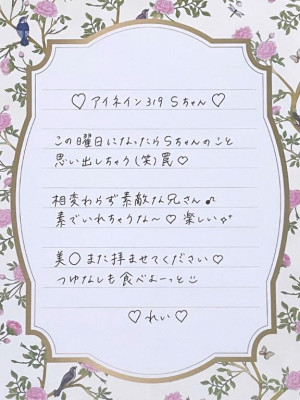 ♡アイネイン319 Sちゃん♡
この曜日になったらSちゃんのこと
思い出しちゃう(笑)罠♡
相変わらず素敵な兄さん♪
素でいれちゃうな〜♡楽しい
美〇また拝ませてください♡
つゆなしも食べよーっと
♡れい♡